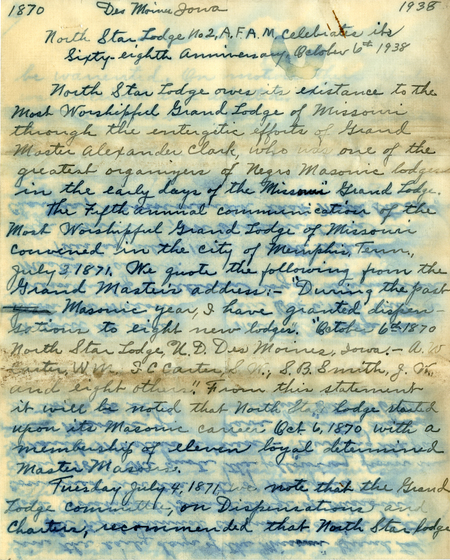 1870 Des Moines, Iowa 1938
North Star Lodge No 2, A.F.A.M. Celebrates its
Sixty-eighth Anniversary, October 6th 1938
North Star Lodge owes its existance to the
Most Worshipful Grand Lodge of Missouri
through the entergitic efforts of Grand
Master Alexander Clark, who was one of the
greatest organizers of Negro Masonic lodges
in the early days of the Missouri Grand Lodge.
The Fifth annual communication of the
Most Worshipful Grand Lodge of Missouri
convened in the city of Memphis, Tenn,
July 3 1871. We quote the following from the
Grand Master's address:- "During the past
Masonic year, I have granted dispen-
sations to eight new lodges. "October 6th 1870
North Star Lodge, U.D. Des Moines, Iowa. - A. W
Carter, W.M. T C Carter, S.W., S.B. Smith, J. W.
and eight others." From this statement
it will be noted that North Star Lodge started
upon its Masonic career Oct 6, 1870 with a
membership of eleven loyal determined
Master Masons.
Tuesday July 4, 1871 we note that the Grand
Lodge committee, on Dispensations and
Charters, recommended that North Star Lodge